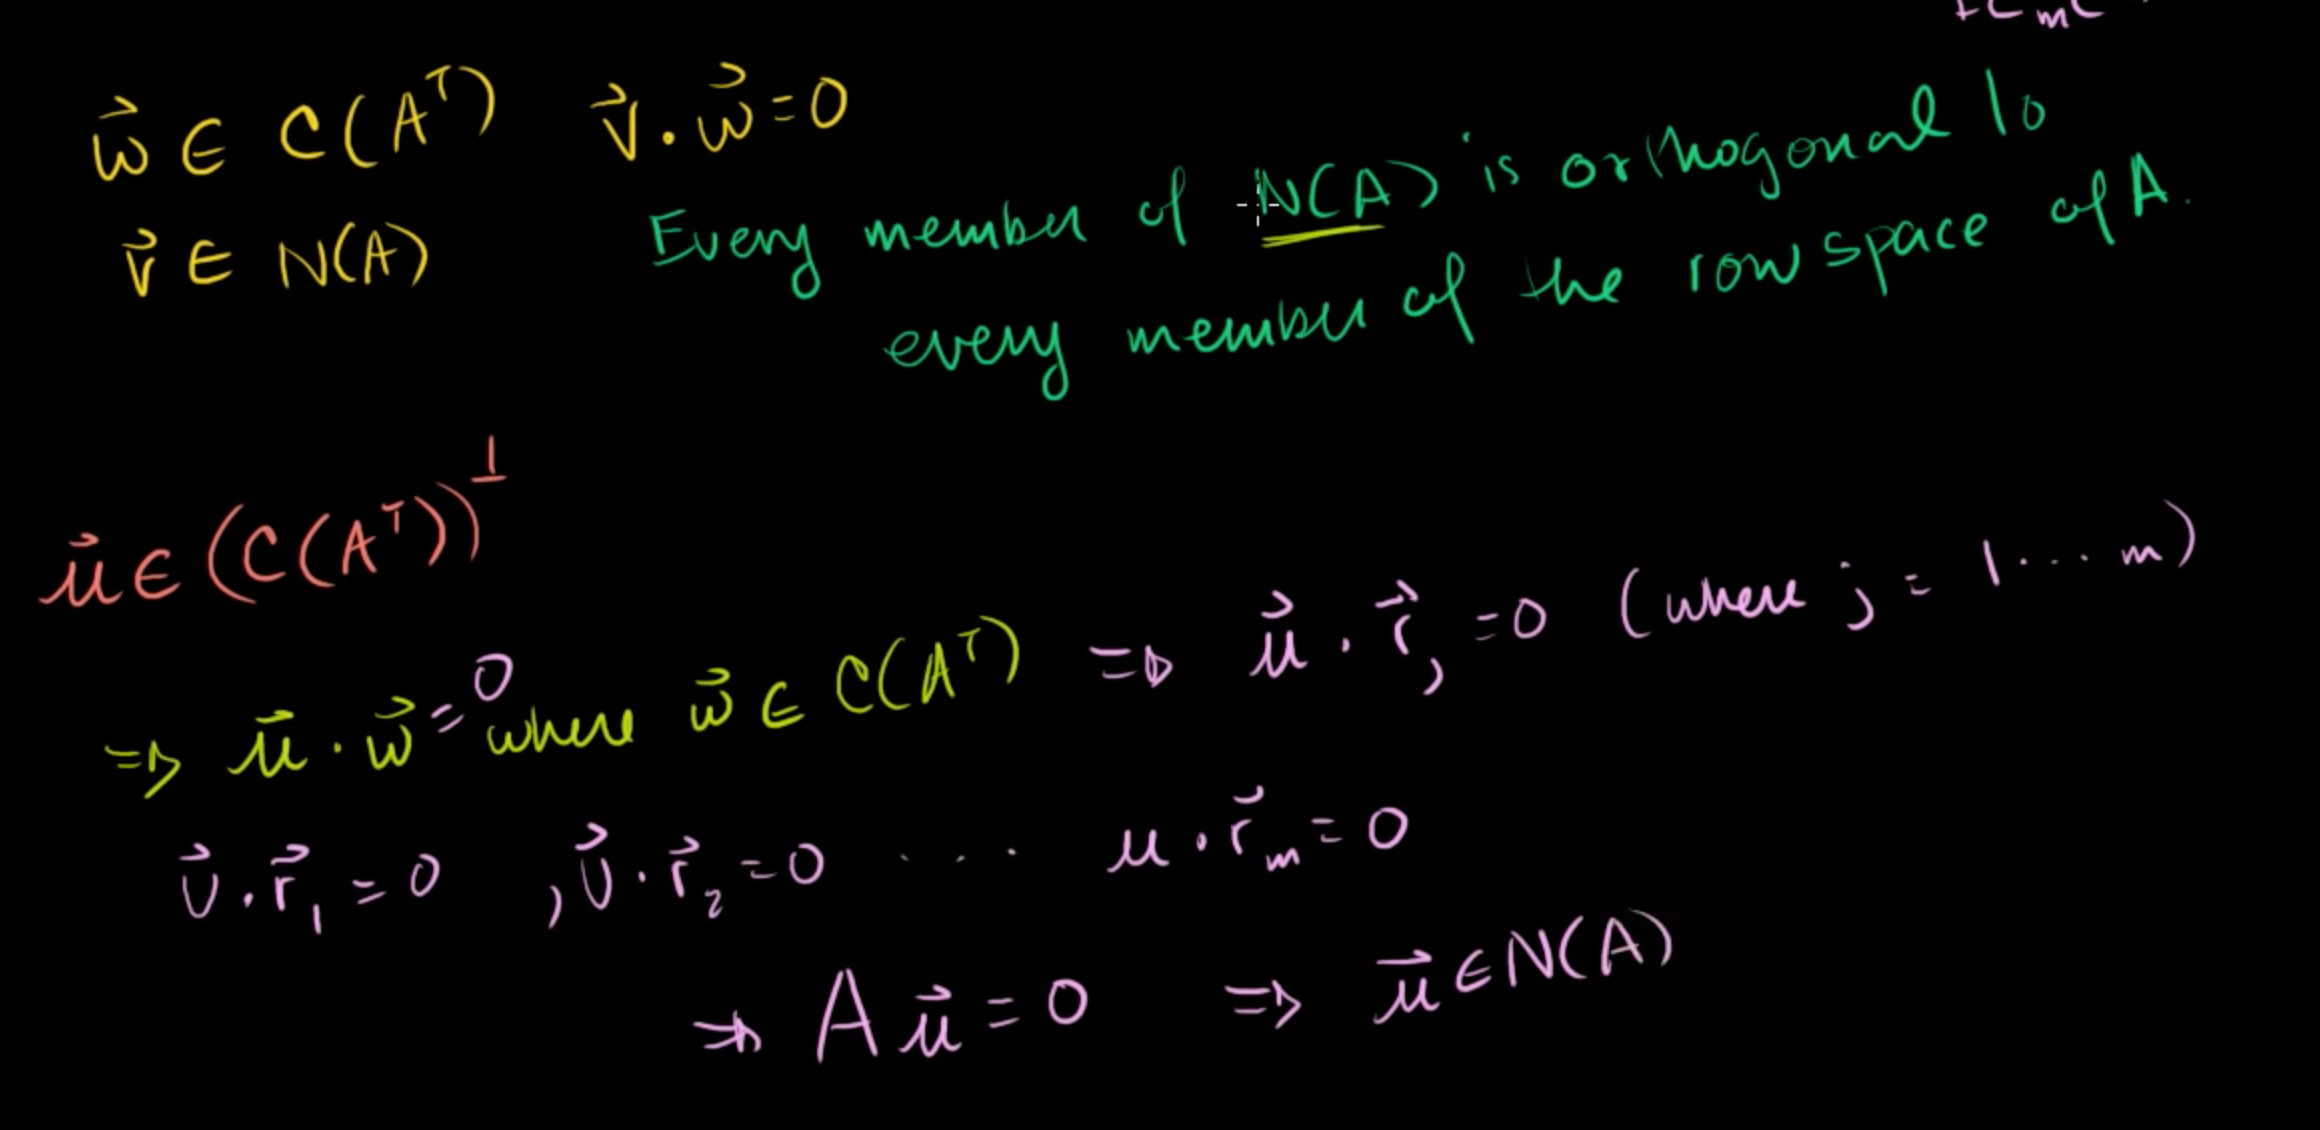 +C_m
w⃗ ∈ C(Aᵀ) v⃗ · w⃗ = 0
v⃗ ∈ N(A)
Every member of N(A) is orthogonal to
every member of the row space of A.
u⃗ ∈ (C(Aᵀ))^⊥
⇒ u⃗ · w⃗ = 0 where w⃗ ∈ C(Aᵀ) ⇒ u⃗ · r⃗_j = 0 (where j = 1 ... m)
u⃗ · r⃗_1 = 0 , u⃗ · r⃗_2 = 0 ... u · r⃗_m = 0
⇒ A u⃗ = 0 ⇒ u⃗ ∈ N(A)